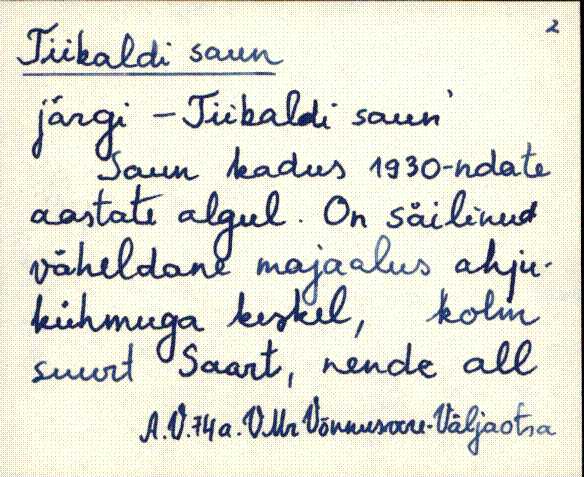 2
Tiikaldi saun
järgi - Tiikaldi saun'
Saun kadus 1930-ndate
aastate algul. On säilinud
väheldane majaalus ahju-
kühmuga keskel, kolm
suurt Saart, nende all
A.V. 74a. V.Mr Võnnusoore-Väljaotsa